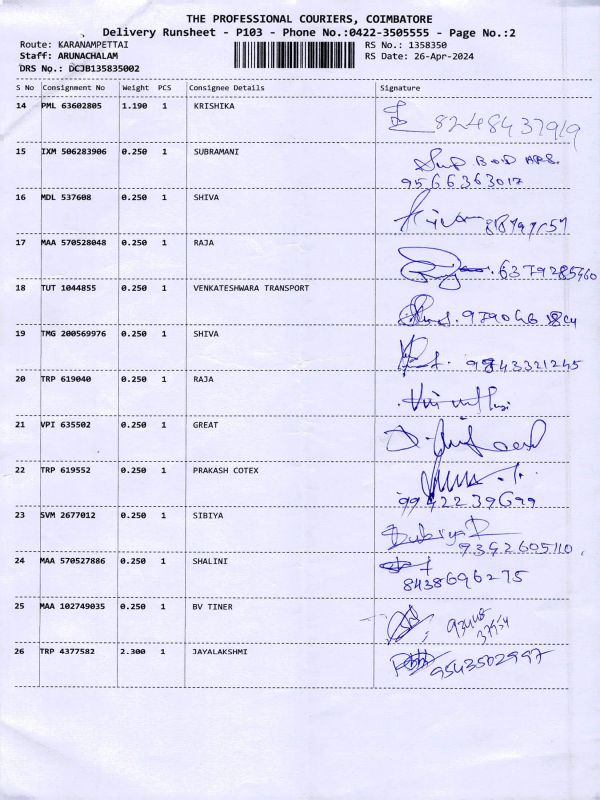 THE PROFESSIONAL COURIERS, COIMBATORE
Delivery Runsheet - P103 - Phone No.:0422-3505555 - Page No.:2
Route: KARANAMPETTAI
RS No.: 1358350
Staff: ARUNACHALAM
RS Date: 26-Apr-2024
DRS No.: DCJB135835002
S No Consignment No Weight PCS Consignee Details Signature
14 PML 63602805 1.190 1 KRISHIKA
8248437919
15 IXM 506283906 0.250 1 SUBRAMANI
9566363017
16 MDL 537608 0.250 1 SHIVA
17 MAA 570528048 0.250 1 RAJA
6379285460
18 TUT 1044855 0.250 1 VENKATESHWARA TRANSPORT
19 TMG 200569976 0.250 1 SHIVA
9843321245
20 TRP 619040 0.250 1 RAJA
21 VPI 635502 0.250 1 GREAT
22 TRP 619552 0.250 1 PRAKASH COTEX
9942239699
23 SVM 2677012 0.250 1 SIBIYA
9342605110
24 MAA 570527886 0.250 1 SHALINI
8438696275
25 MAA 102749035 0.250 1 BV TINER
26 TRP 4377582 2.300 1 JAYALAKSHMI
9543502997